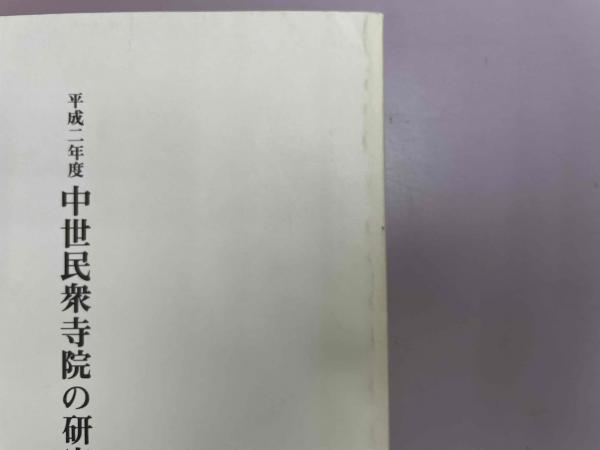 平成二年度 中世民衆寺院の研